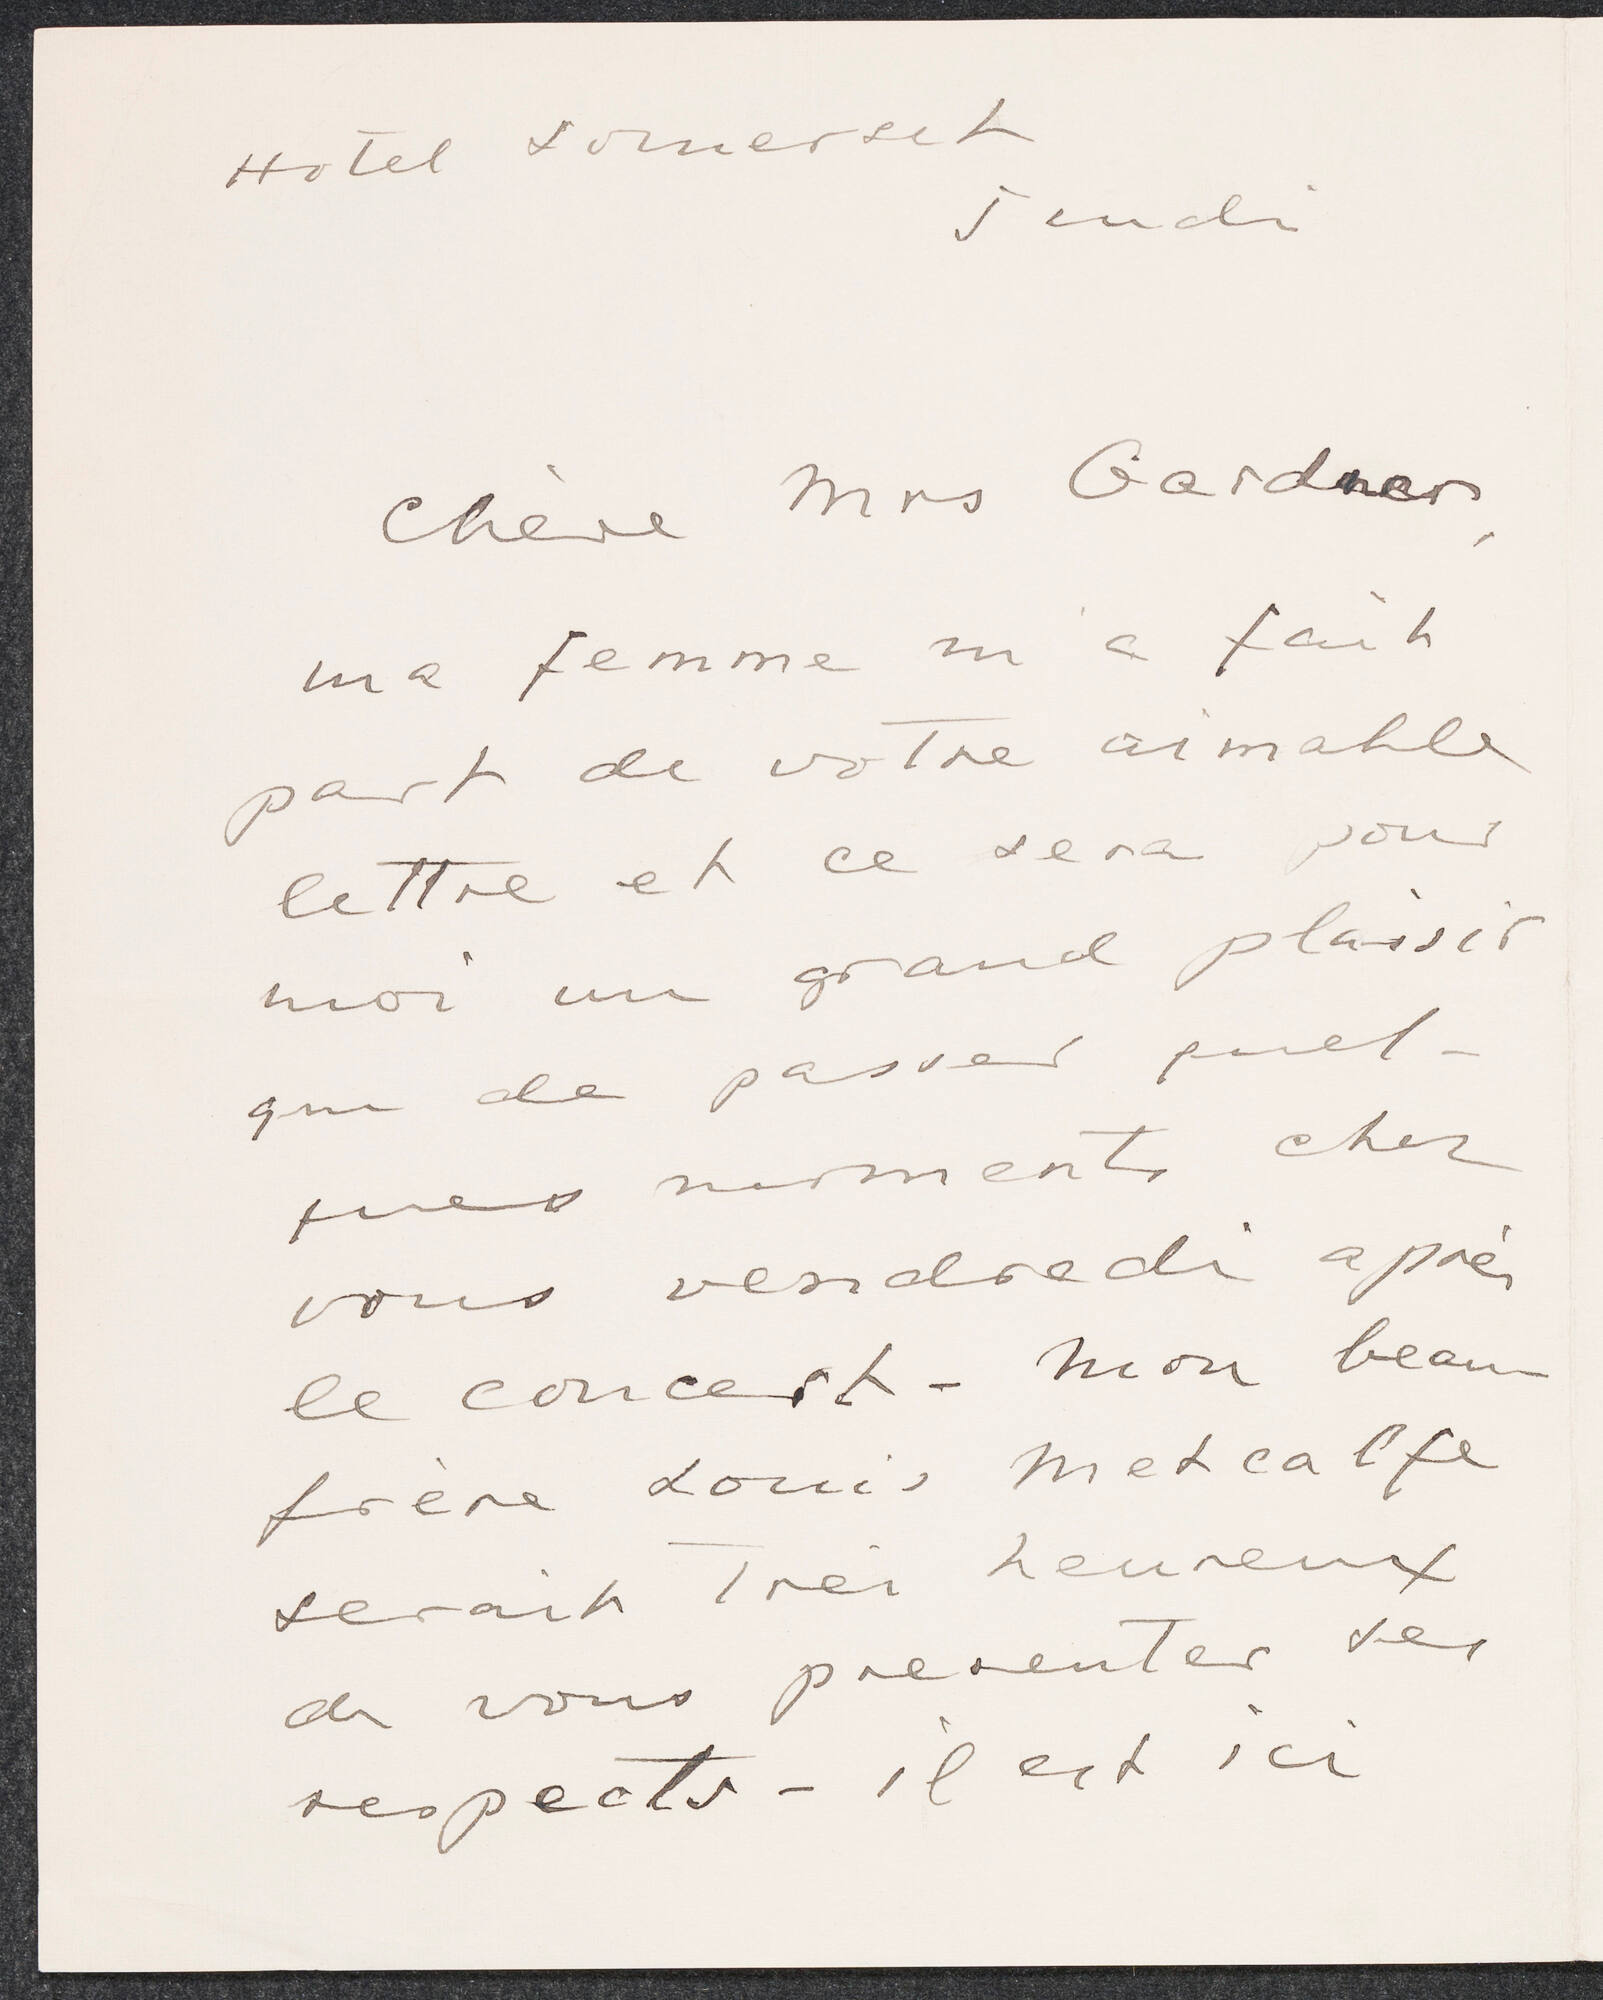 Hotel Somerset
Jeudi
Chère Mrs Gardner,
ma femme m'a fait
part de votre aimable
lettre et ce sera pour
moi un grand plaisir
que de passer quel-
ques moments chez
vous vendredi après
le concert - Mon beau
frère Louis Metcalfe
serait très heureux
de vous presenter ses
respects - il est ici